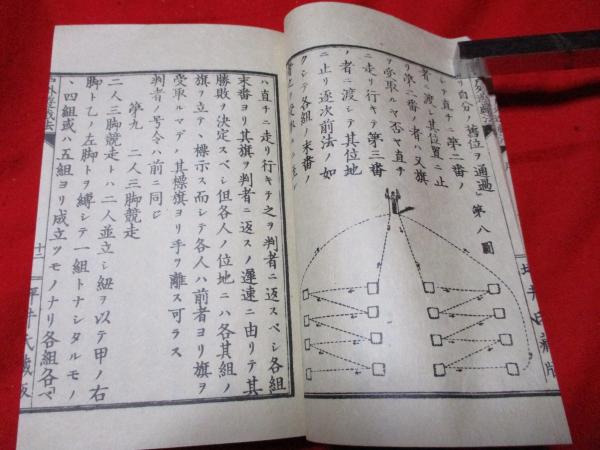 リ自分ノ舊位ヲ通過
シテ直チニ第二番ノ
者ニ渡シ其位置ニ止
リ第二番ノ者ハ又旗
ヲ受取ルマ否ヤ直チ
ニ走リ行キテ第三番
ノ者ニ渡シテ其位地
ニ止リ逐次前法ノ如
クシテ各組ノ末番ノ
第八圖
ハ直チニ走リ行キテ之ヲ判者ニ返スベシ各組
末番ヨリ其旗ヲ判者ニ返スノ遲速ニ由リテ其
勝敗ヲ決定スベシ但各人ノ位地ニハ各其組ノ
旗ヲ立テ、標示ス而シテ各人ハ前者ヨリ旗ヲ
受取ルマデハ其標旗ヨリ手ヲ離ス可ラス
判者ノ号令ハ前ニ同ジ
第九 二人三脚競走
二人三脚競走トハ二人並立シ紐ヲ以テ甲ノ右
脚ト乙ノ左脚トヲ縛シテ一組トナシタルモノ
、四組或ハ五組ヨリ成立ツモノナリ各組各々
十二
坪井氏藏版